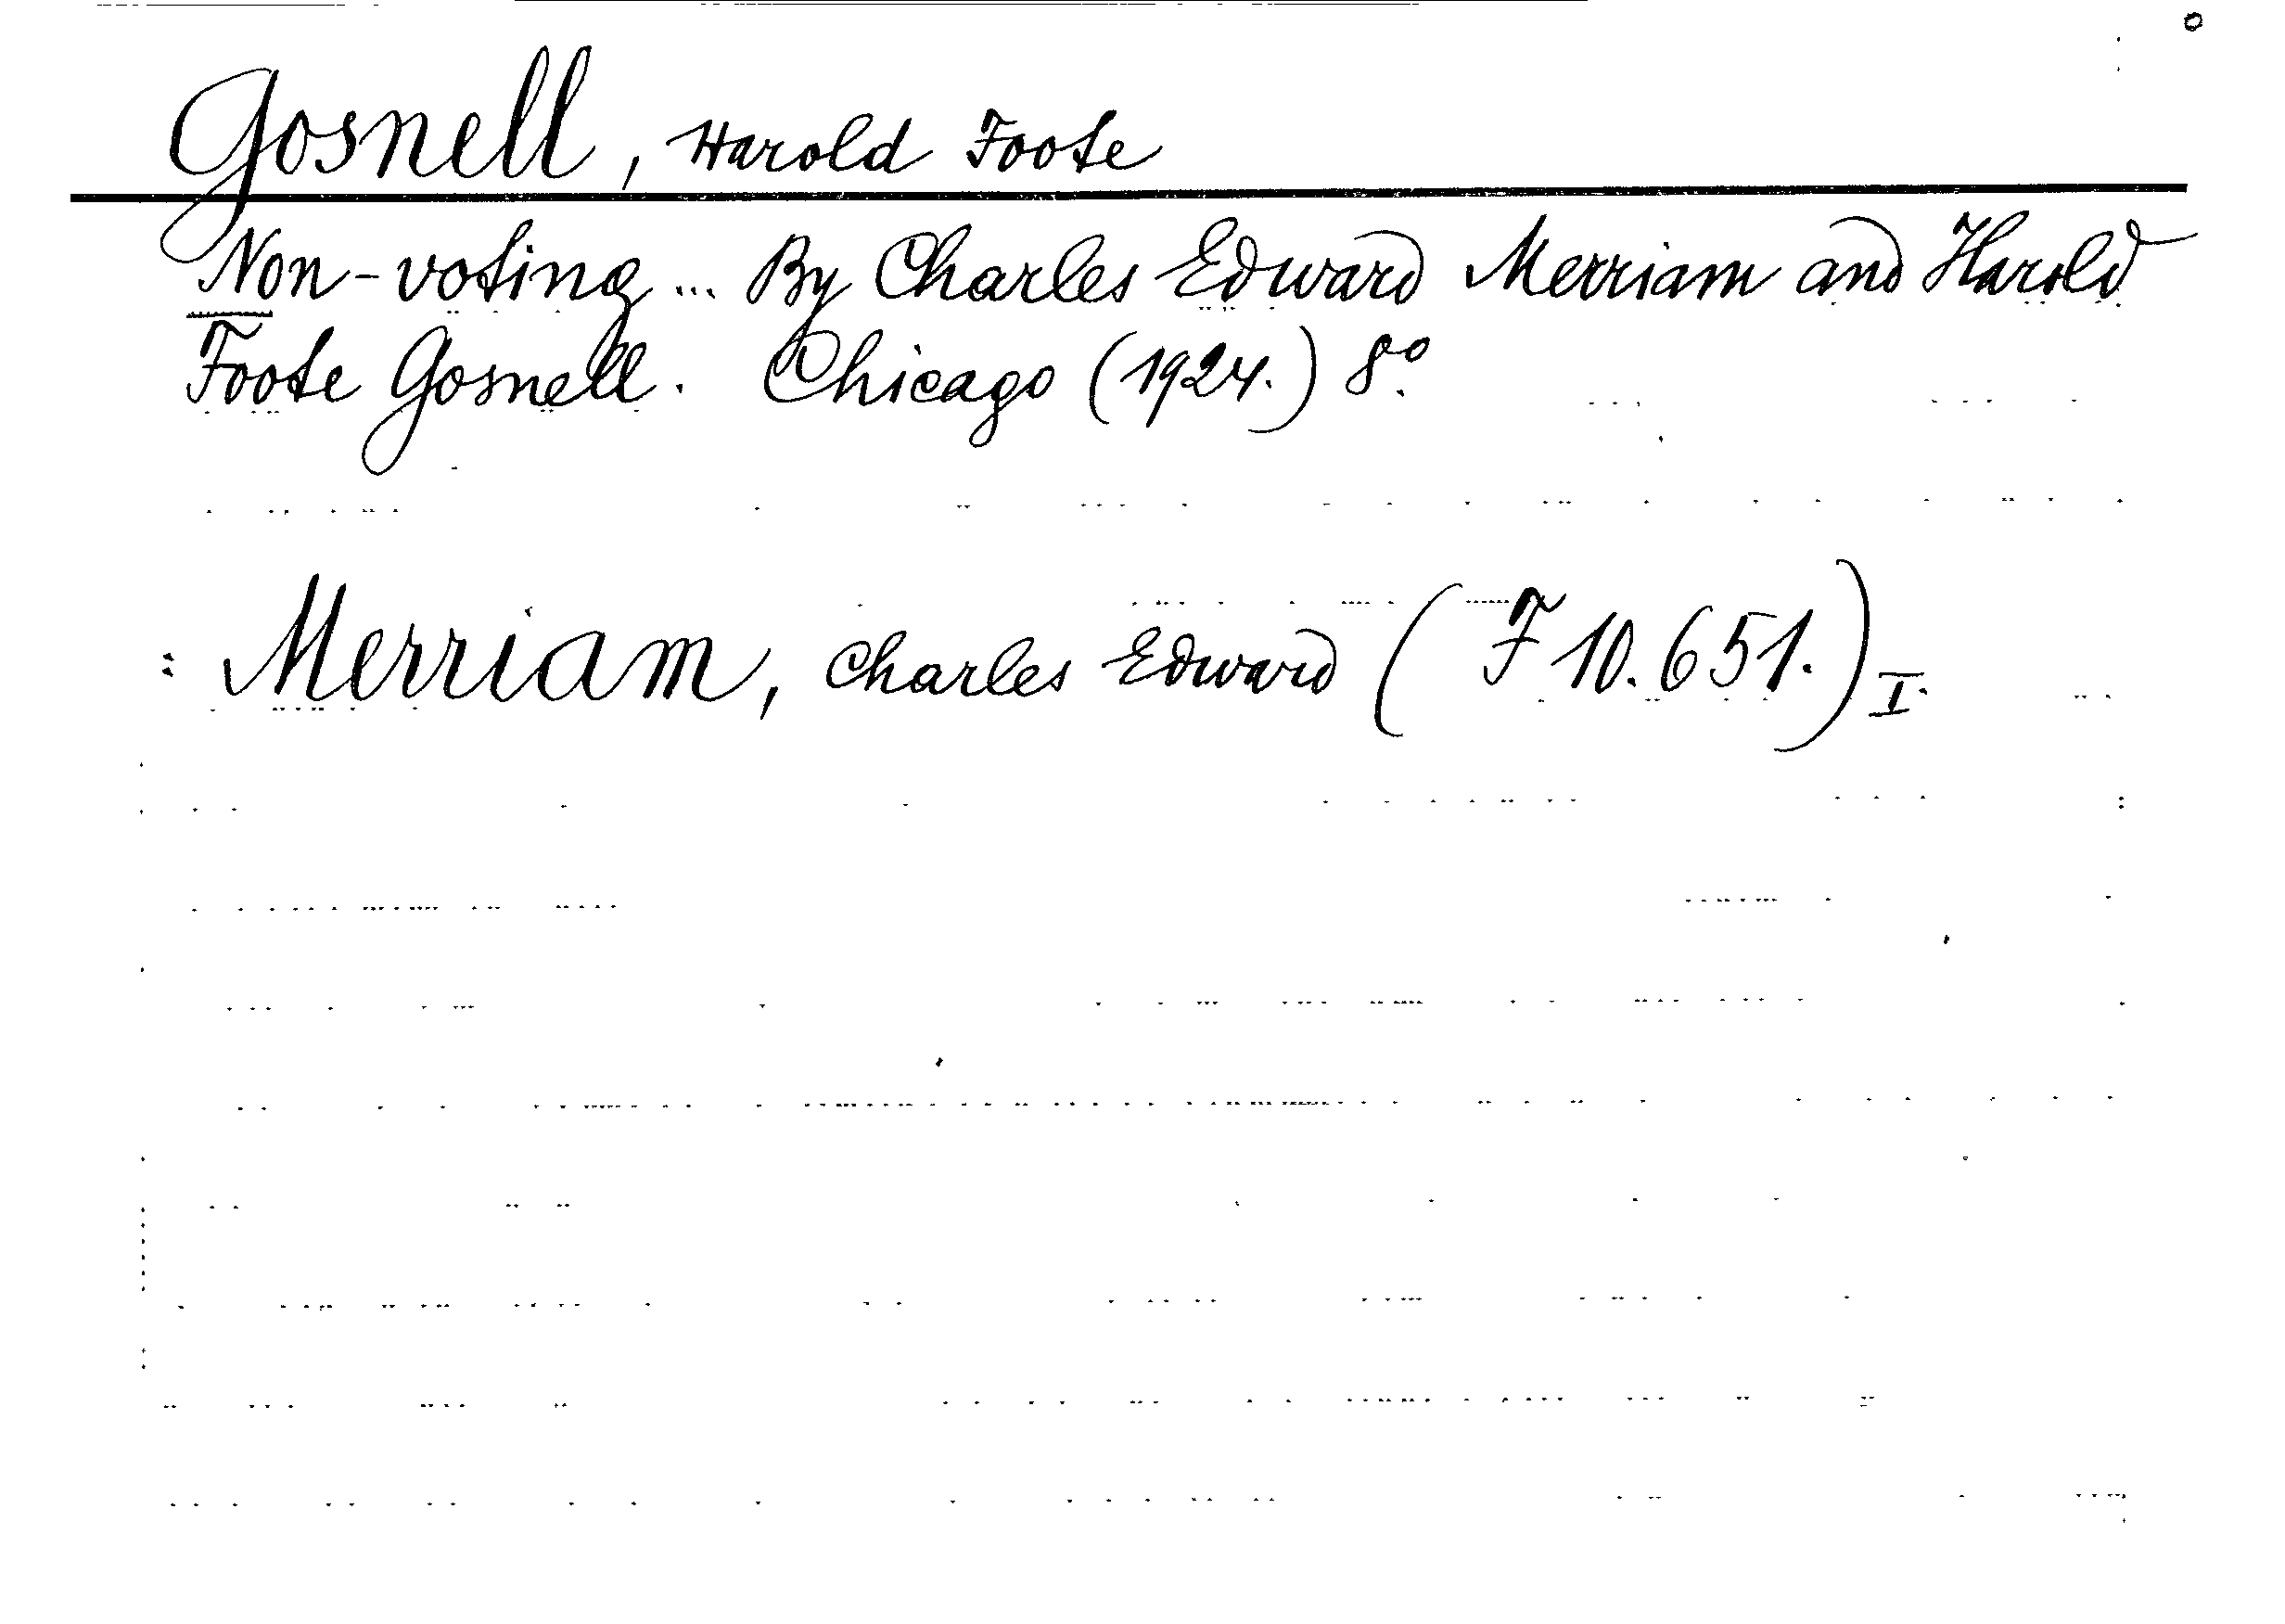 Gosnell, Harold Foote
Non-voting ... By Charles Edward Merriam and Harold
Foote Gosnell. Chicago (1924.) 8°.
: Merriam, Charles Edward (F 10.651.) I.